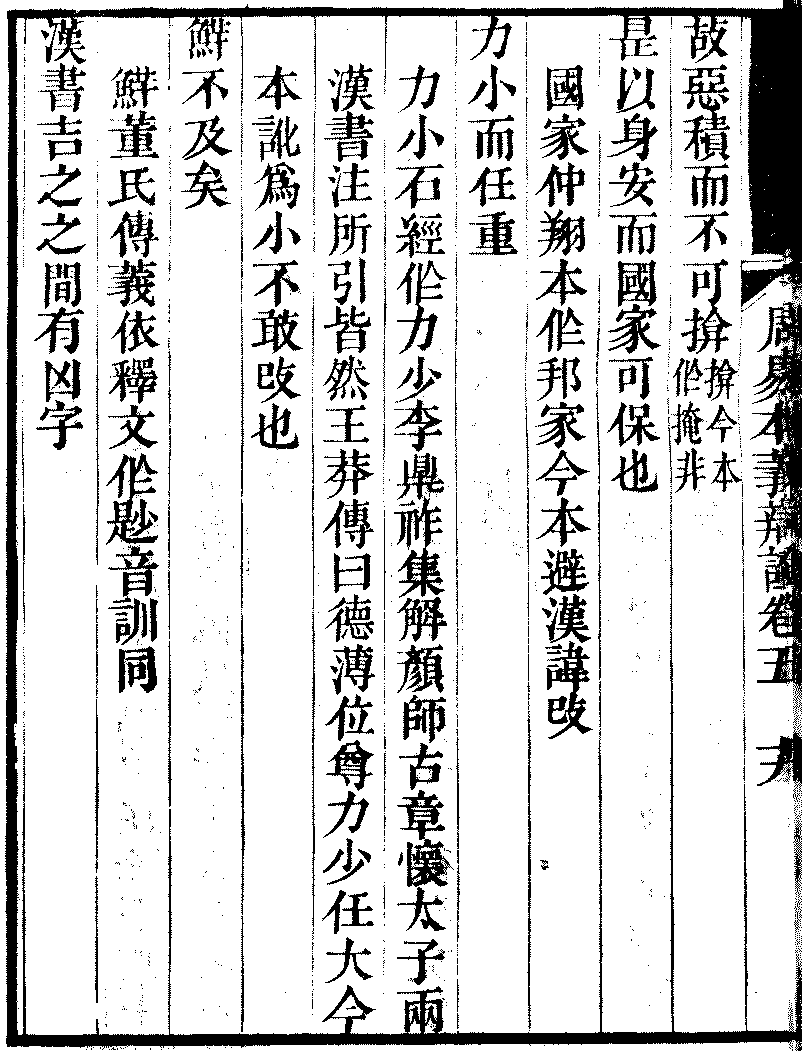 周易本義辨證卷五
故惡積而不可揜揜今本作掩非
是以身安而國家可保也
國家仲翔本作邦家今本避漢諱改
力小而任重
力小石經作力少李鼎祚集解顏師古章懷太子兩
漢書注所引皆然王莽傳曰德薄位尊力少任大今
本訛爲小不敢改也
鮮不及矣
鮮董氏傳義依釋文作尟音訓同
漢書吉之之間有凶字